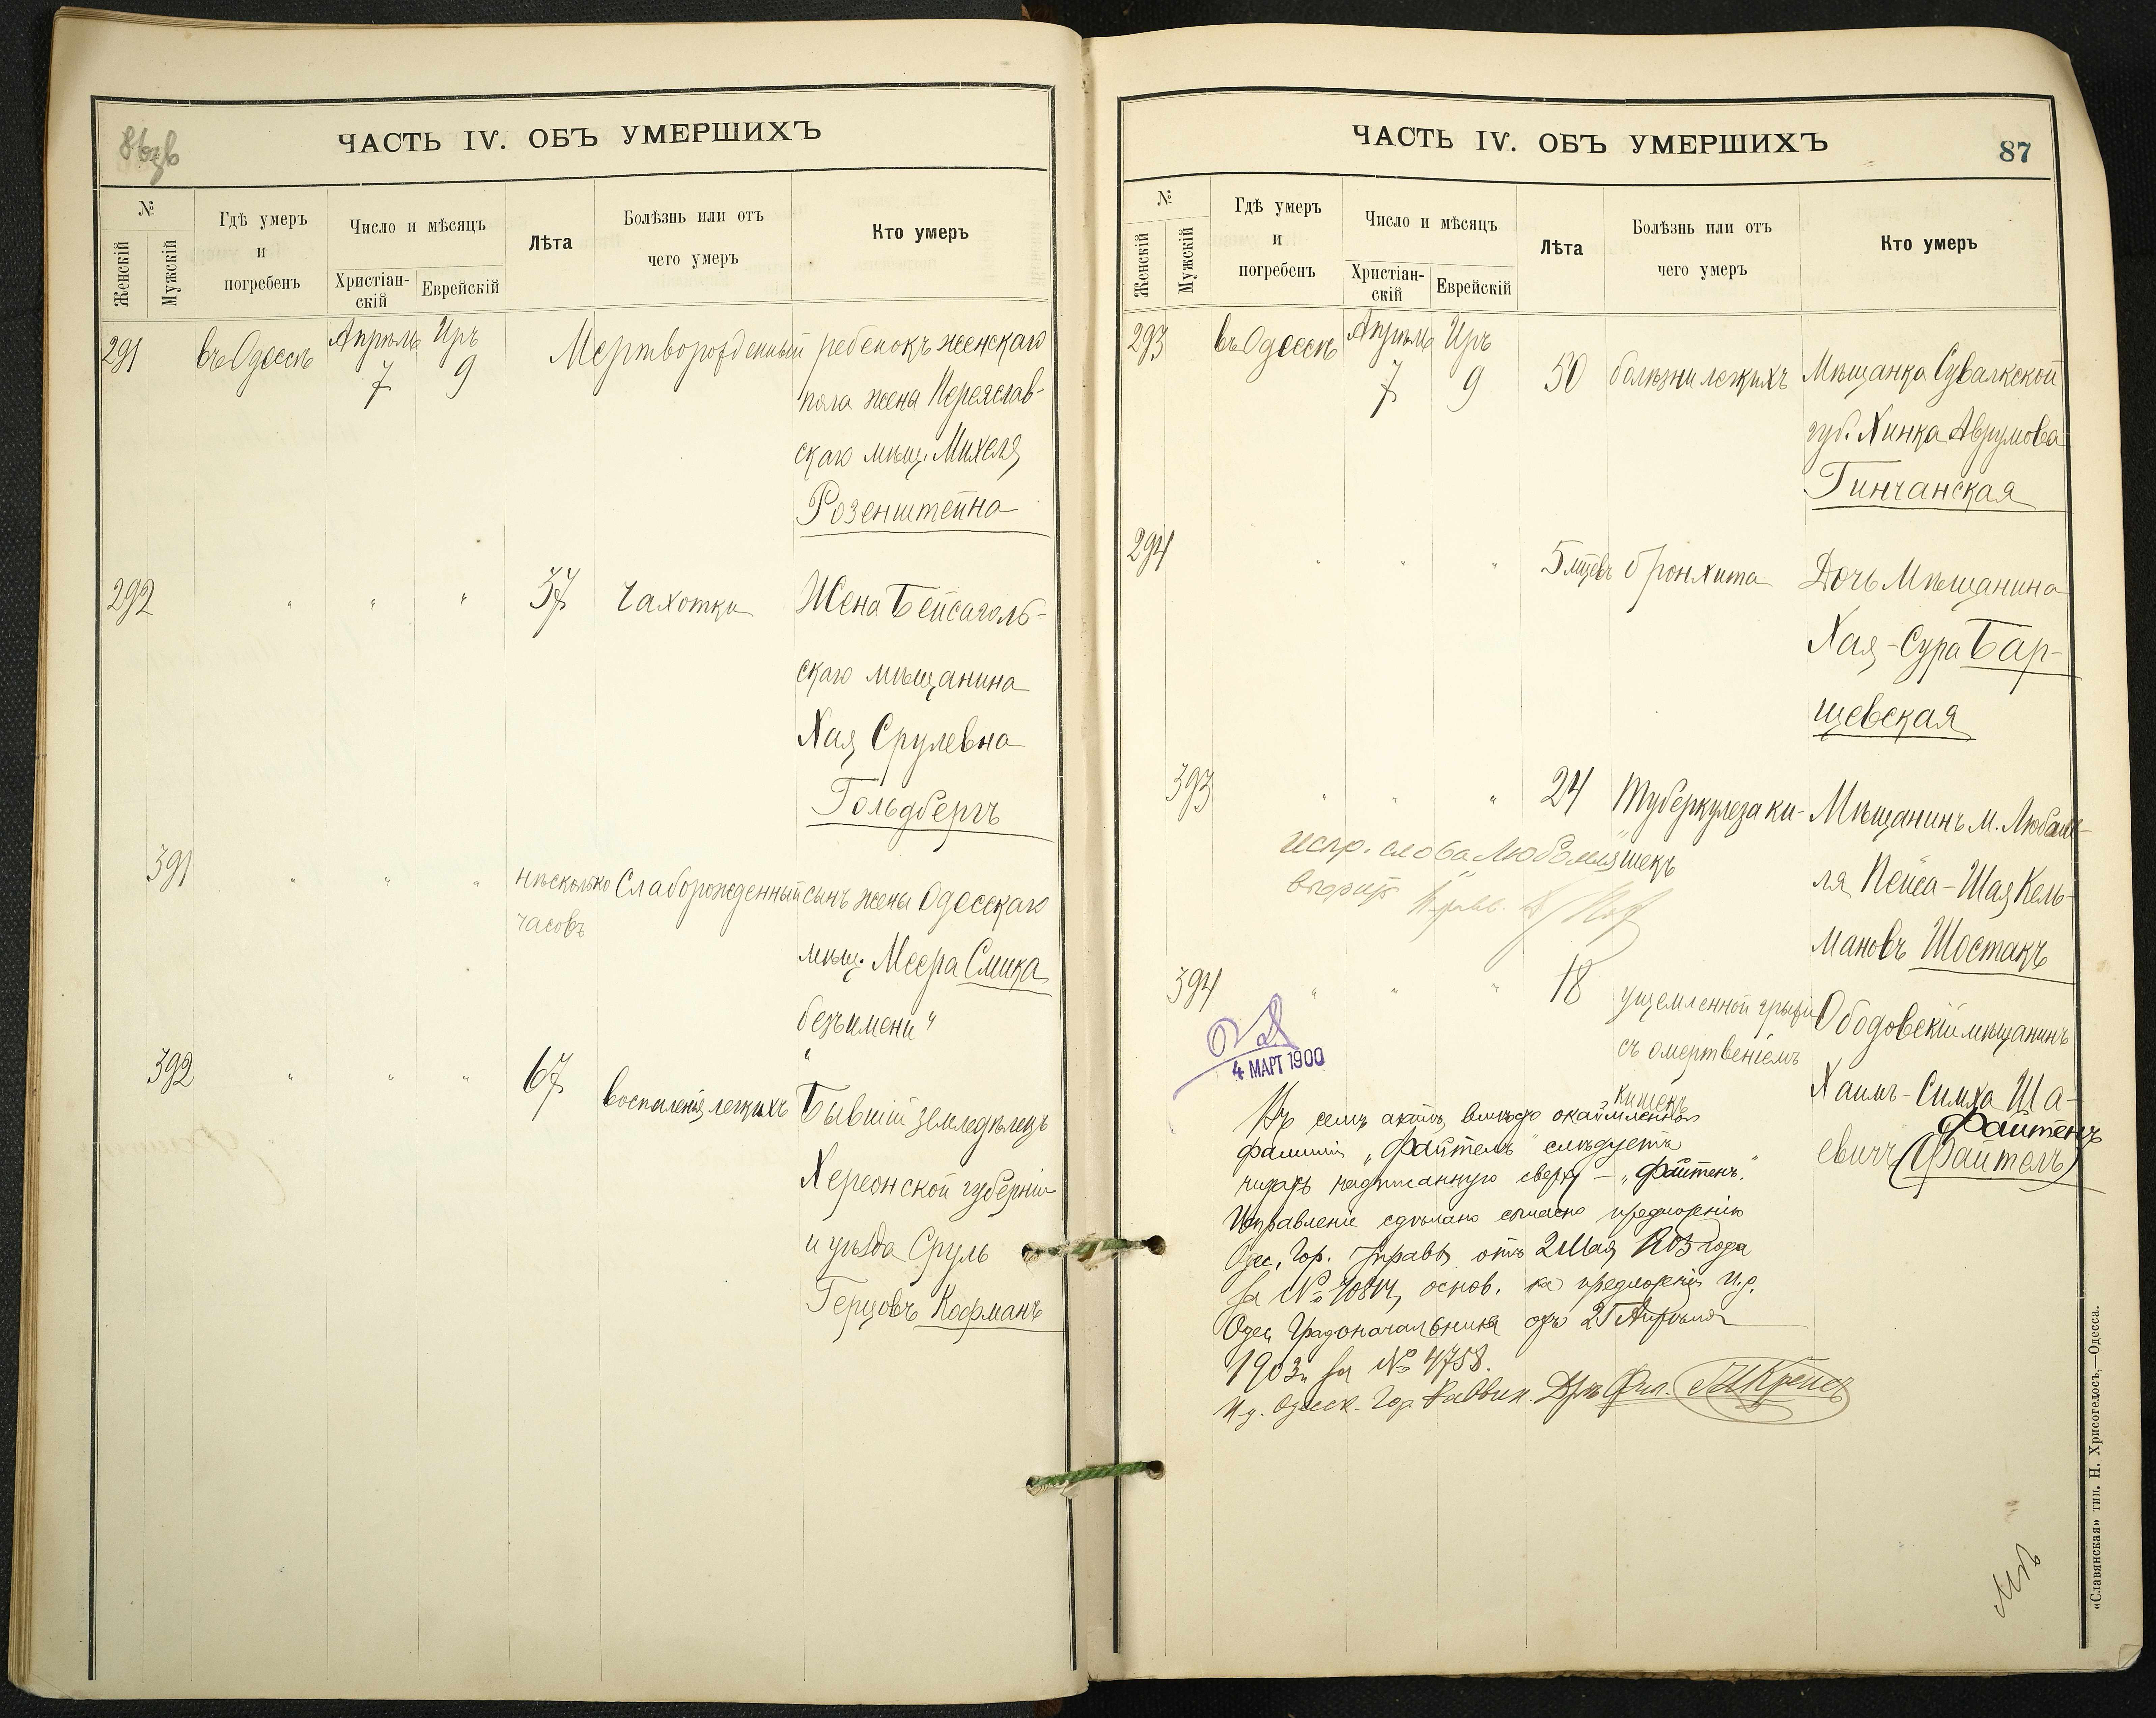 ЧАСТЬ IV. ОБЪ УМЕРШИХЪ
№
Женскій
Мужскій
Гдѣ умеръ
и
погребенъ
Число и мѣсяцъ
Христіан-
скій
Еврейскій
Лѣта
Болѣзнь или отъ
чего умеръ
Кто умеръ
291 въ Одессѣ Апрѣль Иръ Мертворожденный ребенокъ женскаго
7 9
пола жена Переяслав-
скаго мѣщ. Михеля
Розенштейна
292 " " " 37 Чахотки Жена Бейсаголь-
скаго мѣщанина
Хая Срулевна
Гольдбергъ
391 " " " нѣсколько Слаборожденный сынъ жены Одесскаго
часовъ
мѣщ. Меера Смика
безъ имени "
392 " " " 67 воспаленія легкихъ Бывшій земледѣлецъ
Херсонской губерніи
и уѣзда Сруль
Герцовъ Кофманъ
ЧАСТЬ IV. ОБЪ УМЕРШИХЪ
87
№
Женскій
Мужскій
Гдѣ умеръ
и
погребенъ
Число и мѣсяцъ
Христіан-
скій
Еврейскій
Лѣта
Болѣзнь или отъ
чего умеръ
Кто умеръ
293 въ Одессѣ Апрѣль Иръ
7 9 50 болѣзни легкихъ Мѣщанка Сувалкской
губ. Хинка Аврумова
Гинчанская
294 " " " 5 мцевъ бронхита Дочь Мѣщанина
Хая-Сура Бар-
щевская
393 " " " 24 Туберкулеза ки- Мѣщанинъ м.
шекъ
испр. слова
ля Пейса-Шая Кель-
мановъ Шостакъ
394 " " " 18 ущемленной грыжи Ободовскій мѣщанинъ
съ омертвеніемъ
кишекъ
Хаимъ-Симха Ша-
Файтенъ
евичъ (Файтелъ)
4 МАРТ 1900
Въ семъ актѣ, вмѣсто окаймленной
фамиліи „Файтелъ" слѣдуетъ
читать надписанную сверху — „Файтенъ."
Исправленіе сдѣлано согласно предложенію
Одес. Гор. Управы отъ 2 Мая 1903 года
за № основ. на предложеніи И. д.
Одес. Градоначальника отъ Апрѣля
1903 за № 4758.
И. д. Одесск. Гор. Раввин. Д-ръ Фил. Крепсъ
«Славянская» тип. Н. Хрисогелосъ,—Одесса.